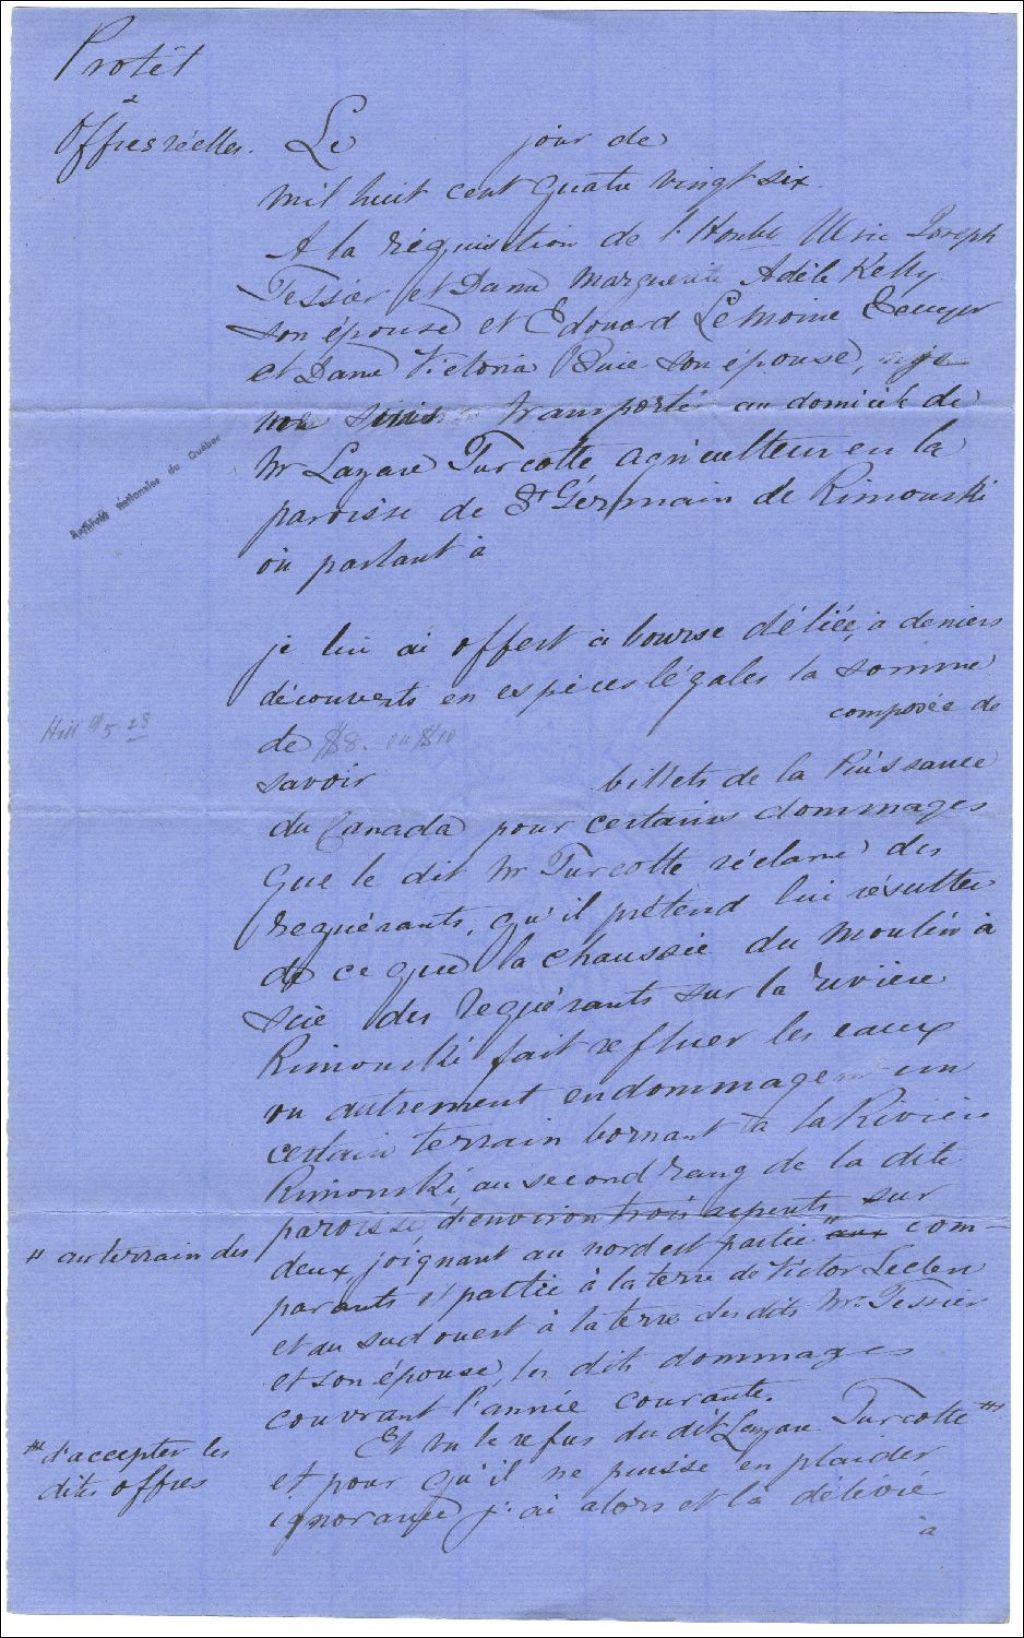 Protêt
&
Offres réelles.
Le jour de
mil huit cent quatre vingt six.
A la réquisition de l'Honble Ulric Joseph
Tessier et Dame Marguerite Adèle Kelly
son épouse et Edouard LeMoine Ecuyer
et Dame Victoria Buie son épouse, je
me suis transporté au domicile de
Mr Lazare Turcotte agriculteur en la
paroisse de St Germain de Rimouski
où parlant à
Archives nationales du Québec
je lui ai offert à bourse déliée, à deniers
découverts en espèces légales la somme
de $8. ou $10 composée de
savoir billets de la Puissance
du Canada pour certains dommages
que le dit Mr Turcotte réclame des
requérants, qu'il prétend lui résulter
de ce que la chaussée du moulin à
scie des requérants sur la rivière
Rimouski fait refluer les eaux
ou autrement endommage un
certain terrain bornant à la Rivière
Rimouski, au second rang de la dite
paroisse, d'environ trois arpents sur
deux, joignant au nord est partie " aux com-
" au terrain des
parants & partie à la terre de Victor Leclerc
et au sud ouest à la terre des dits Mr. Tessier
et son épouse, les dits dommages
couvrant l'année courante.
Et vu le refus du dit Lazare Turcotte
d'accepter les
dites offres
et pour qu'il ne puisse en plaider
ignorance j'ai alors et là délivré
à